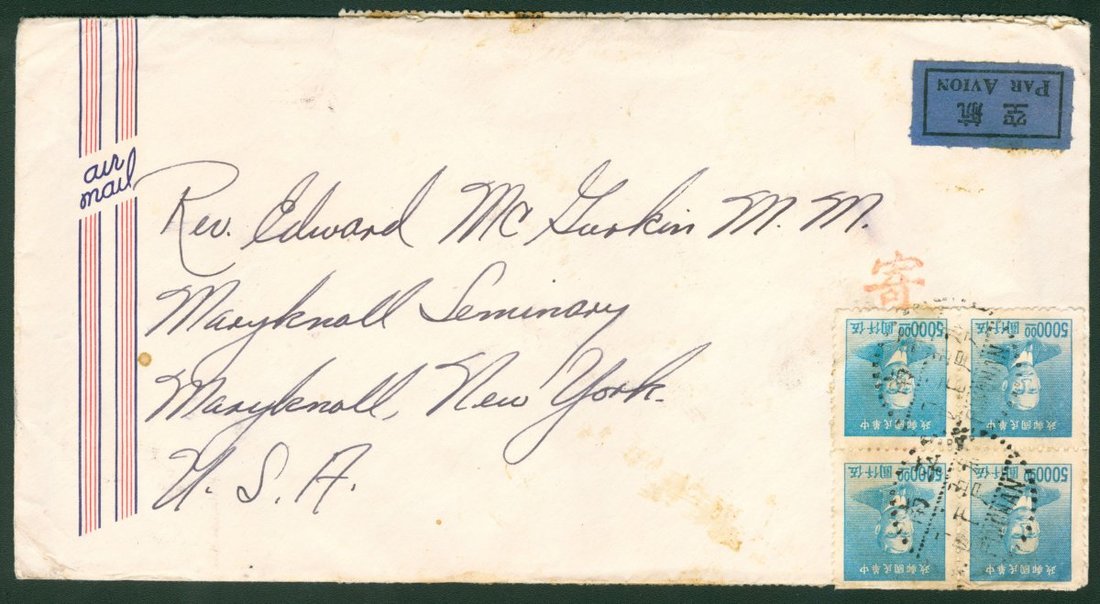 air
mail
航空
PAR AVION
Rev. Edward McGurkin M.M.
Maryknoll Seminary
Maryknoll, New York.
U.S.A.
寄
中華民國郵政
伍仟圓 5000.00
中華民國郵政
伍仟圓 5000.00
中華民國郵政
伍仟圓 5000.00
中華民國郵政
伍仟圓 5000.00